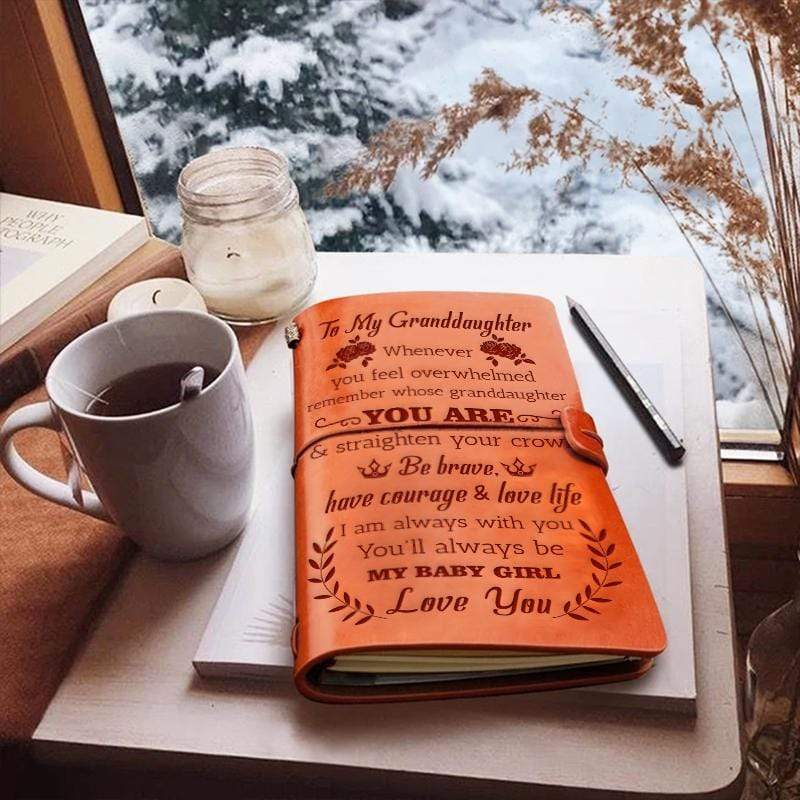 WHY
PEOPLE
To My Granddaughter
Whenever
you feel overwhelmed
remember whose granddaughter
YOU ARE
& straighten your crow
Be brave,
have courage & love life
I am always with you
You'll always be
MY BABY GIRL
Love You